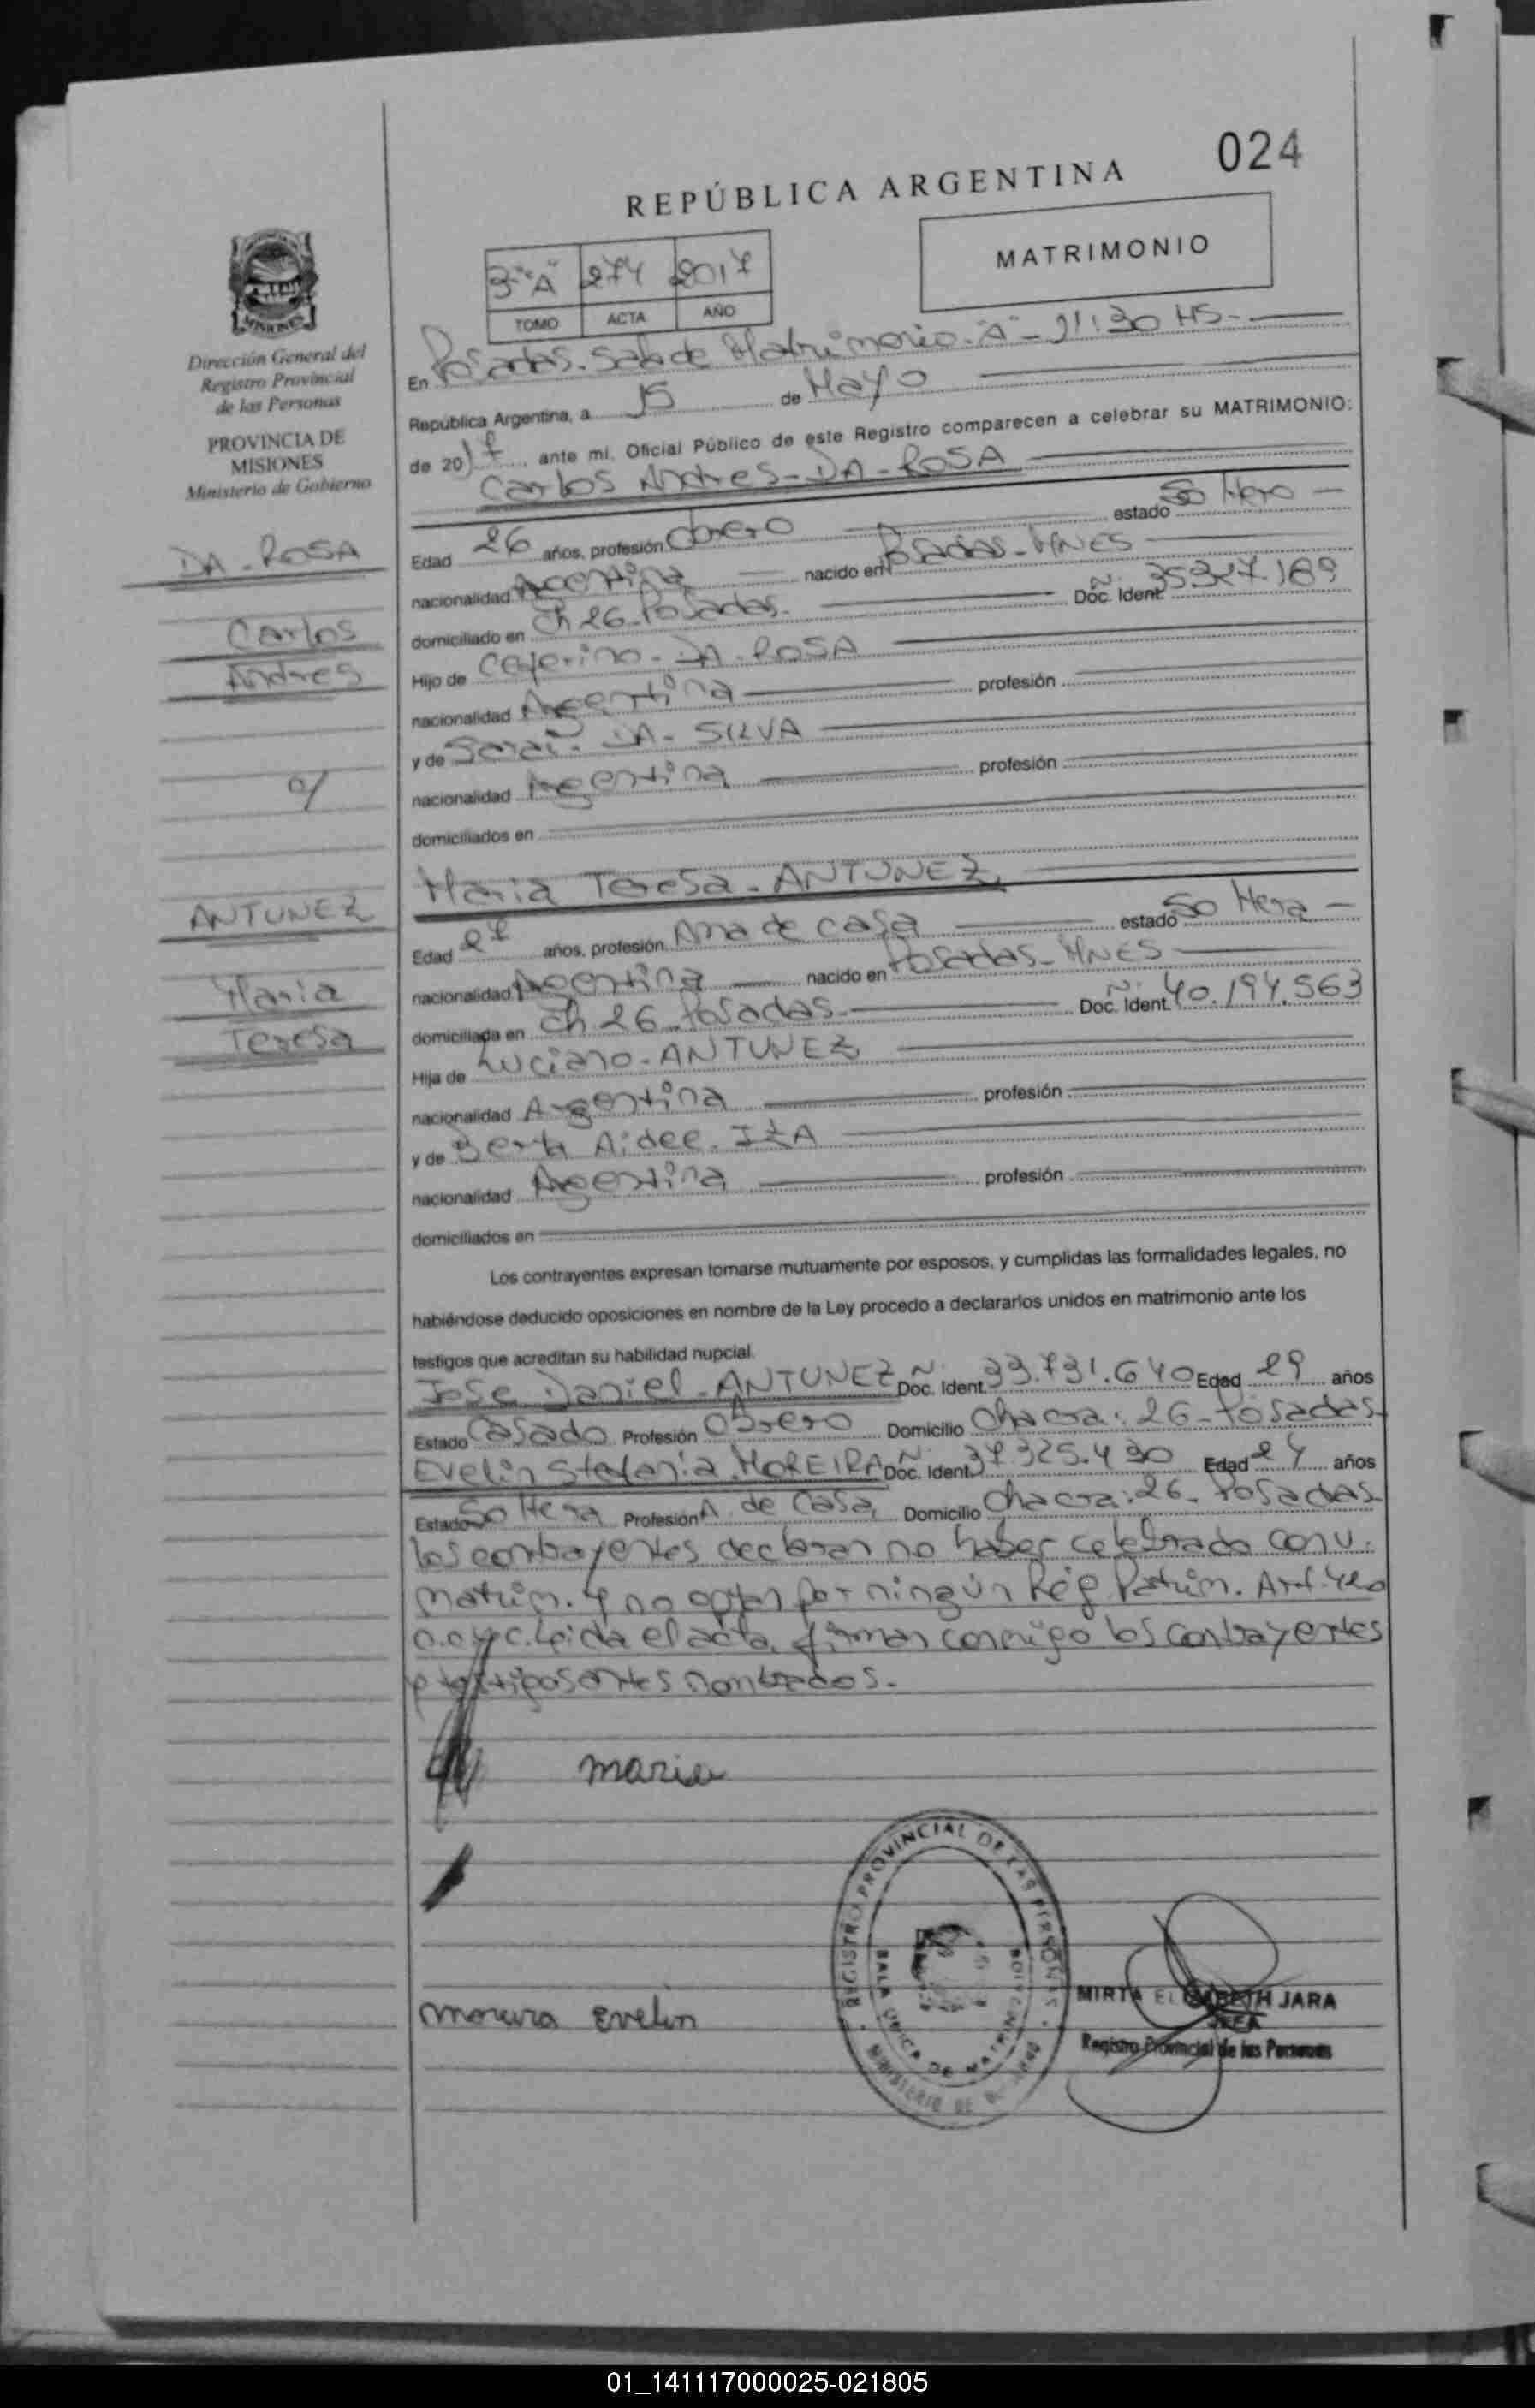 024
REPÚBLICA ARGENTINA
MATRIMONIO
3° "A" 274 2017
TOMO ACTA AÑO
MISIONES
Dirección General del
Registro Provincial
de las Personas
PROVINCIA DE
MISIONES
Ministerio de Gobierno
DA-ROSA
Carlos
Andres
c/
ANTUNEZ
Maria
Teresa
En Posadas-Sala de Matrimonio-"A"- :30 HS-
República Argentina, a 15 de Mayo
de 2017, ante mí, Oficial Público de este Registro comparecen a celebrar su MATRIMONIO:
Carlos Andres-DA-ROSA
Edad 26 años, profesión Obrero estado Soltero
nacionalidad Argentina nacido en Posadas-MNES
domiciliado en Ch 26-Posadas. Doc. Ident. N° 35327.189
Hijo de Ceferino-DA-ROSA
nacionalidad Argentina profesión
y de DA-SILVA
nacionalidad Argentina profesión
domiciliados en
Maria Teresa-ANTUNEZ
Edad 27 años, profesión Ama de casa estado Soltera
nacionalidad Argentina nacido en Posadas-MNES
domiciliada en Ch 26-Posadas- Doc. Ident. N° 40.194.563
Hija de Luciano-ANTUNEZ
nacionalidad Argentina profesión
y de Berta Aidee-
nacionalidad Argentina profesión
domiciliados en
Los contrayentes expresan tomarse mutuamente por esposos, y cumplidas las formalidades legales, no
habiéndose deducido oposiciones en nombre de la Ley procedo a declararlos unidos en matrimonio ante los
testigos que acreditan su habilidad nupcial.
Jose Daniel-ANTUNEZ Doc. Ident. N° 33.731.640 Edad 29 años
Estado Casado Profesión Obrero Domicilio Chacra: 26-Posadas-
Evelin Stefania MOREIRA Doc. Ident. N° 37.325.430 Edad 24 años
Estado Soltera Profesión A. de Casa, Domicilio Chacra: 26-Posadas-
los contrayentes declaran no haber celebrado conv.
matrim. y no optan por ningún Rég. Patrim. Art. 420
C.C y C. Leida el acta, firman conmigo los contrayentes
y testigos antes nombrados.
maria
moreira Evelin
REGISTRO PROVINCIAL DE LAS PERSONAS
SALA UNICA DE MATRIMONIOS
MINISTERIO DE GOBIERNO
MIRTA ELIZABETH JARA
JEFA
Registro Provincial de las Personas
01_141117000025-021805